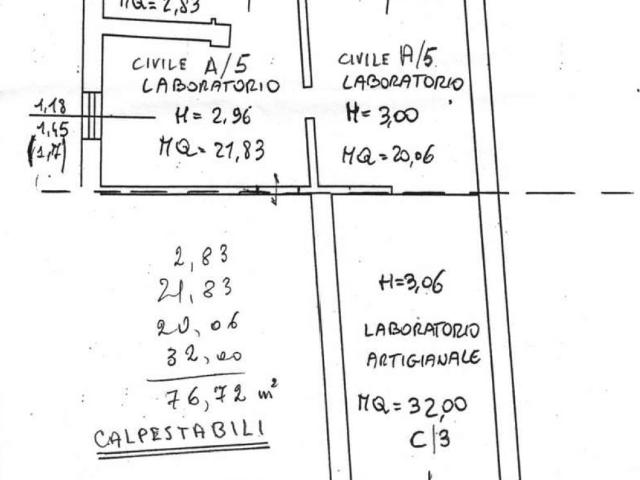 MQ=2,83
CIVILE A/5
LABORATORIO
H=2,96
MQ=21,83
CIVILE A/5
LABORATORIO
H=3,00
MQ=20,06
1,18
1,45
(1,7)
2,83
21,83
20,06
32,00
76,72 m²
CALPESTABILI
H=3,06
LABORATORIO
ARTIGIANALE
MQ=32,00
C/3